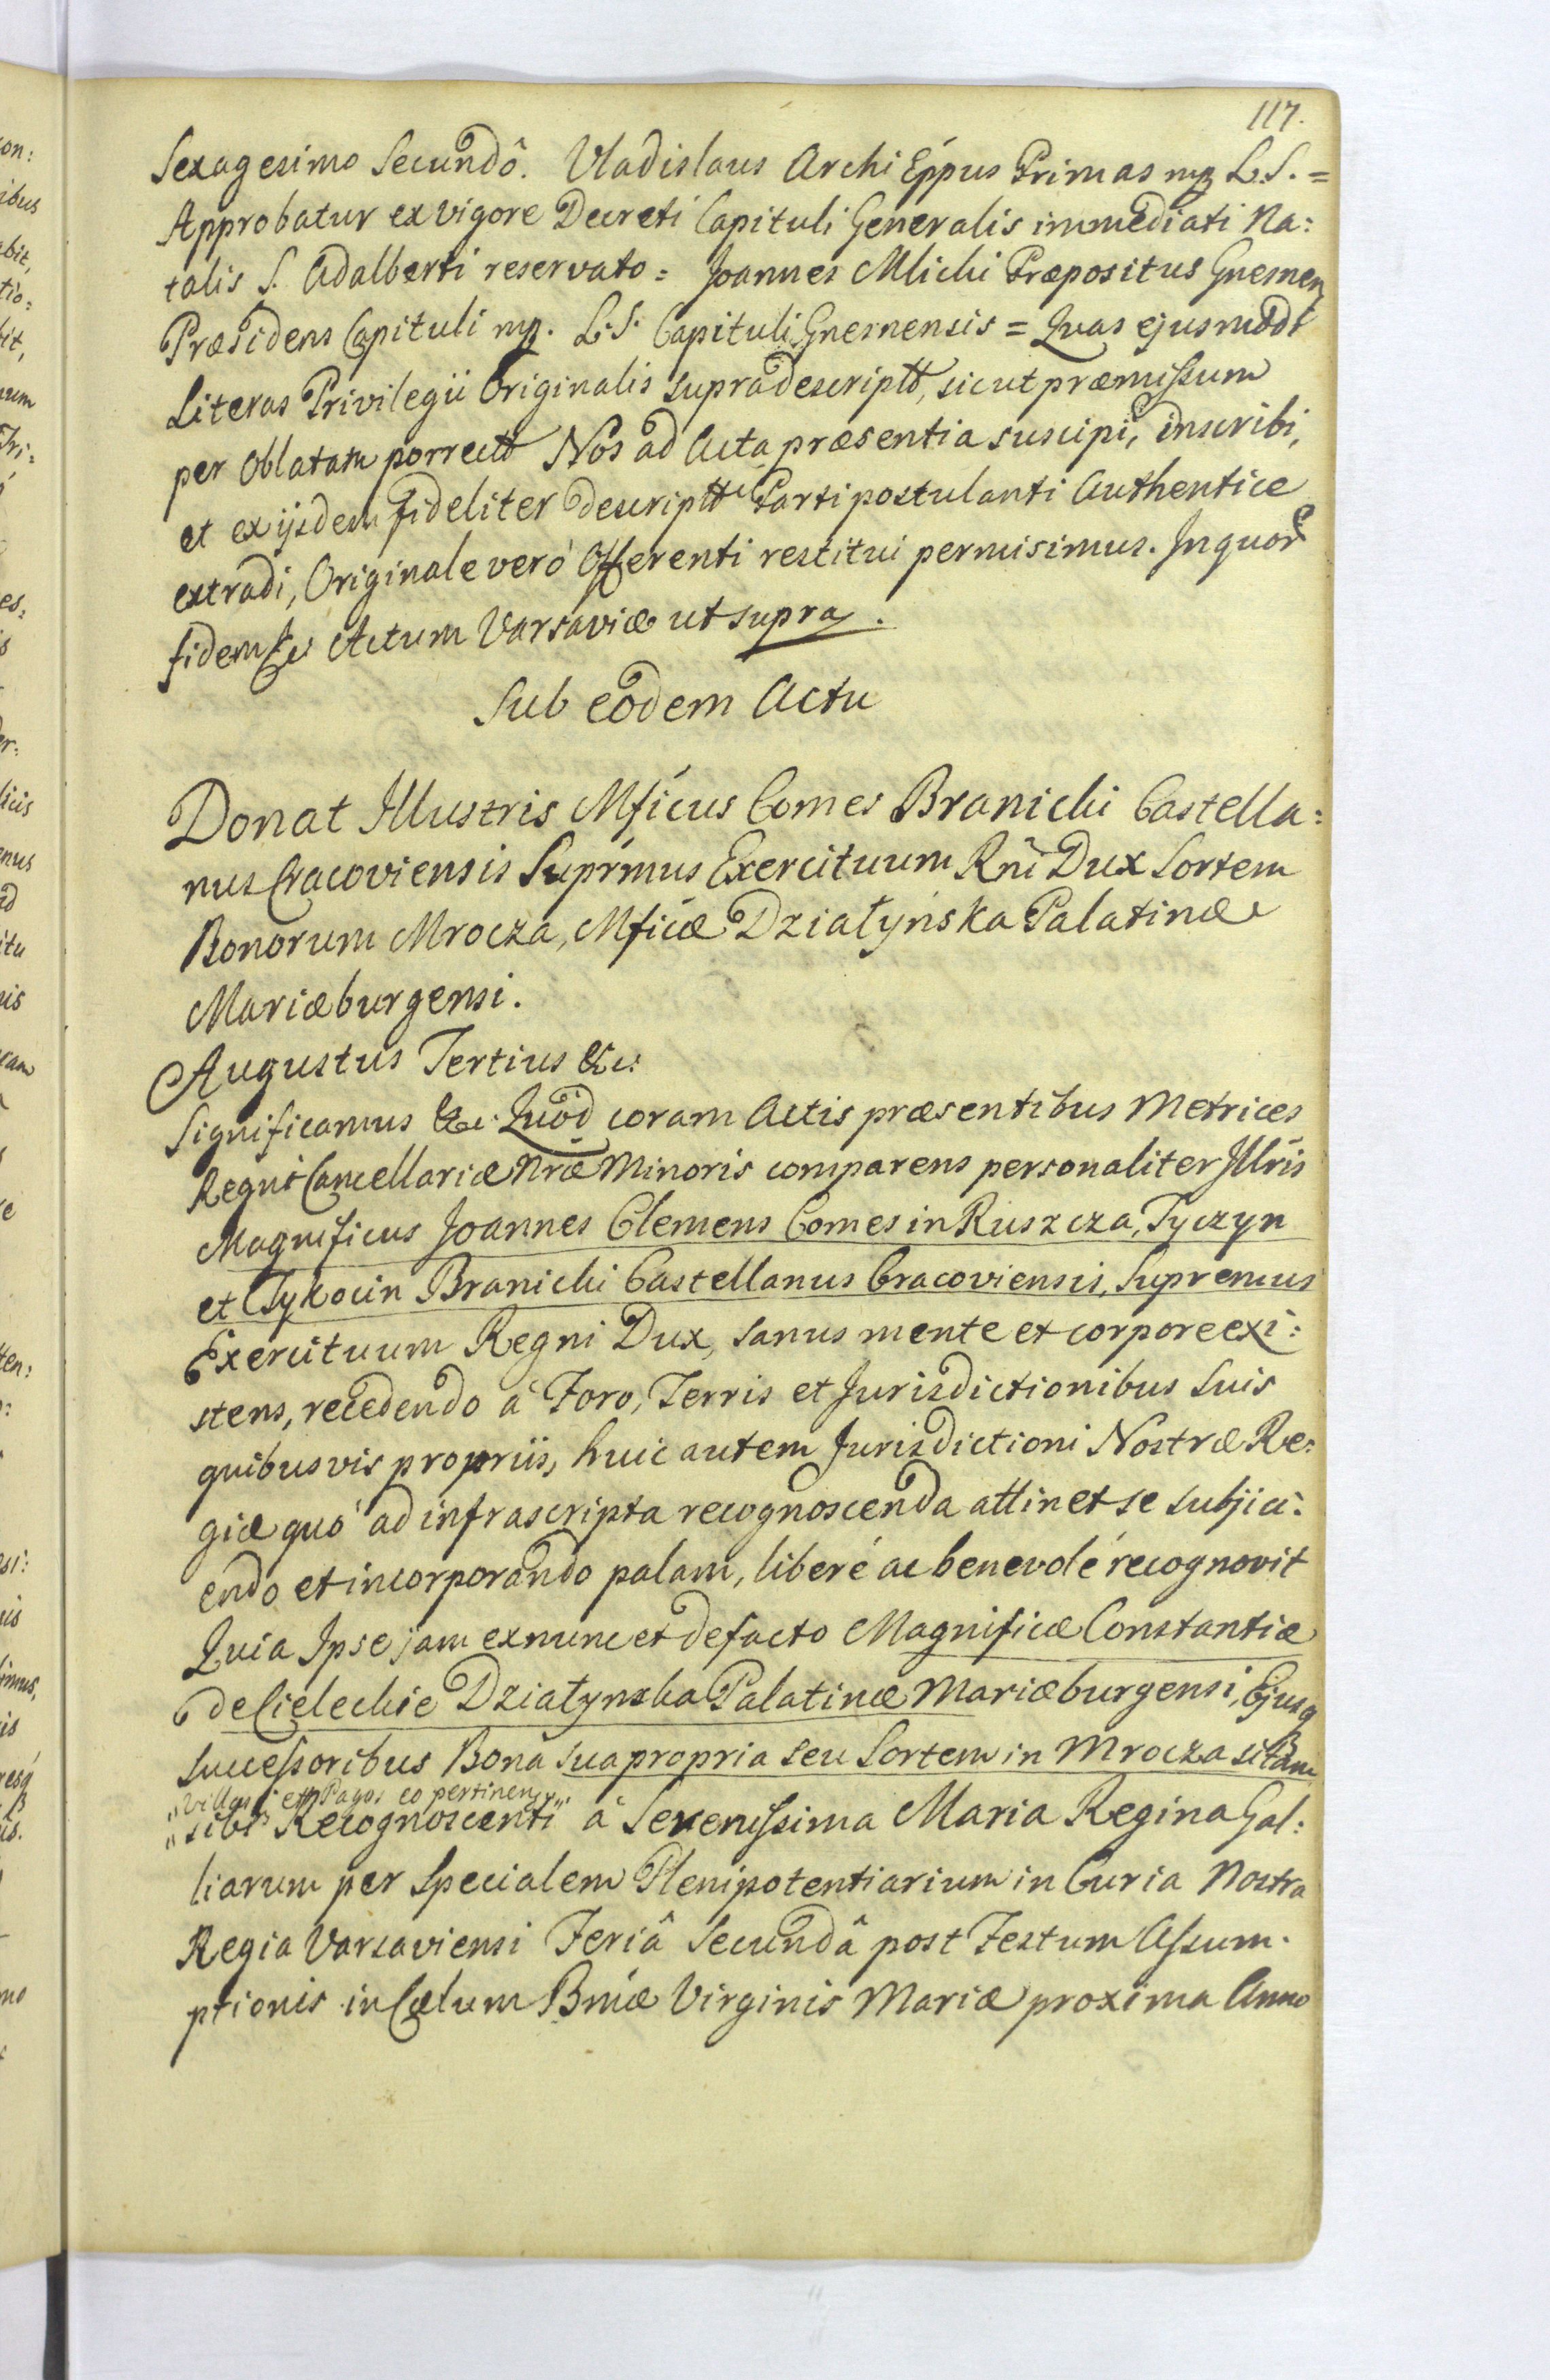 117.
Sexagesimo Secundô. Vladislaus Archi Eppus Primas mp L.S. =
Approbatur ex vigore Decreti Capituli Generalis immediati Na:
talis S. Adalberti reservato = Joannes Mlicki Præpositus Gnesnen
Præsidens Capituli mp. L.S. Capituli Gnesnensis = Quas ejusmodi
Literas Privilegii Originalis supradescriptt, sicut præmissum
per Oblatam porrectt Nos ad Acta præsentia suscipi, inscribi,
et ex ijsdem fideliter descriptt Parti postulanti Authentice
extradi, Originale verò Offerenti restitui permisimus. In quor
fidem &c Actum Varsaviæ ut supra.
Sub eodem Actu
Donat Illustris Mficus Comes Branicki Castella:
nus Cracoviensis Suprmus Exercituum Rni Dux Sortem
Bonorum Mrocza, Mficæ Działyńska Palatinæ
Mariæburgensi.
Augustus Tertius &c:
Significamus &c. Quod coram Actis præsentibus Metrices
Regni Cancellariæ Nræ Minoris comparens personaliter Illris
Magnificus Joannes Clemens Comes in Ruszcza, Tyczyn
et Tykocin Branicki Castellanus Cracoviensis, Supremus
Exercituum Regni Dux, sanus mente et corpore exi:
stens, recedendo à Foro, Terris et Jurisdictionibus Suis
quibusvis propriis, huic autem Jurisdictioni Nostræ Re:
giæ quò ad infrascripta recognoscenda attinet se subjici:
endo et incorporando palam, liberé ac benevolé recognovit
Quia Ipse jam exnunc et defacto Magnificæ Constantiæ
de Cieleckie Działynska Palatinæ Mariæburgensi, Ejusq
Successoribus Bona sua propria seu Sortem in Mrocza sitam
„Villas et Pagos eo pertinen„
„sibi Recognoscenti à Serenissima Maria Regina Gal:
liarum per Specialem Plenipotentiarium in Curia Nostra
Regia Varsaviensi Feriâ Secundâ post Festum Assum:
ptionis in Cœlum Bmæ Virginis Mariæ proxima Anno